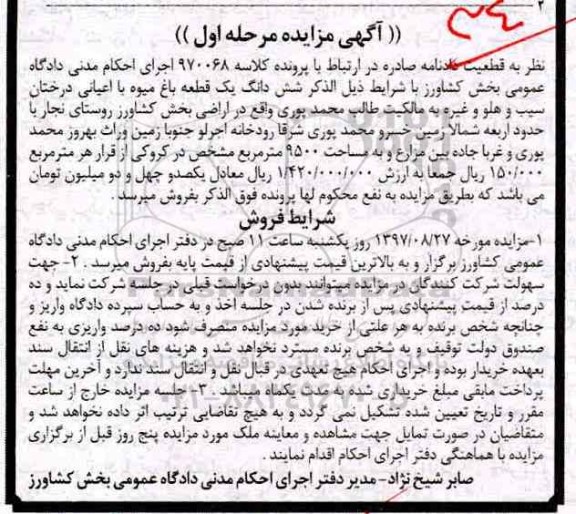 (( آگهی مزایده مرحله اول ))
نظر به قطعیت دادنامه صادره در ارتباط با پرونده کلاسه ۹۷۰۰۶۸ اجرای احکام مدنی دادگاه
عمومی بخش کشاورز با شرایط ذیل الذکر شش دانگ یک قطعه باغ میوه با اعیانی درختان
سیب و هلو و غیره به مالکیت طالب محمد پوری واقع در اراضی بخش کشاورز روستای نجار با
حدود اربعه شمالا زمین خسرو محمد پوری شرقا رودخانه اجرلو جنوبا زمین وراث بهروز محمد
پوری و غربا جاده بین مزارع و به مساحت ۹۵۰۰ مترمربع مشخص در کروکی از قرار هر مترمربع
۱۵۰/۰۰۰ ریال جمعا به ارزش ۱/۴۲۰/۰۰۰/۰۰۰ ریال معادل یکصدو چهل و دو میلیون تومان
می باشد که بطریق مزایده به نفع محکوم لها پرونده فوق الذکر بفروش میرسد .
شرایط فروش
۱-مزایده مورخه ۱۳۹۷/۰۸/۲۷ روز یکشنبه ساعت ۱۱ صبح در دفتر اجرای احکام مدنی دادگاه
عمومی کشاورز برگزار و به بالاترین قیمت پیشنهادی از قیمت پایه بفروش میرسد . ۲- جهت
سهولت شرکت کنندگان در مزایده میتوانند بدون درخواست قبلی در جلسه شرکت نماید و ده
درصد از قیمت پیشنهادی پس از برنده شدن در جلسه اخذ و به حساب سپرده دادگاه واریز و
چنانچه شخص برنده به هر علتی از خرید مورد مزایده منصرف شود ده درصد واریزی به نفع
صندوق دولت توقیف و به شخص برنده مسترد نخواهد شد و هزینه های نقل از انتقال سند
بعهده خریدار بوده و اجرای احکام هیچ تعهدی در قبال نقل و انتقال سند ندارد و آخرین مهلت
پرداخت مابقی مبلغ خریداری شده به مدت یکماه میباشد . ۳- جلسه مزایده خارج از ساعت
مقرر و تاریخ تعیین شده تشکیل نمی گردد و به هیچ تقاضایی ترتیب اثر داده نخواهد شد و
متقاضیان در صورت تمایل جهت مشاهده و معاینه ملک مورد مزایده پنج روز قبل از برگزاری
مزایده با هماهنگی دفتر اجرای احکام اقدام نمایند .
صابر شیخ نژاد- مدیر دفتر اجرای احکام مدنی دادگاه عمومی بخش کشاورز